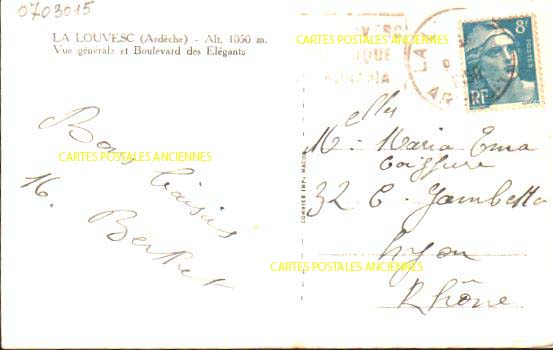 0703015
LA LOUVESC (Ardèche) - Alt. 1050 m.
Vue générale et Boulevard des Elégants
CARTES POSTALES ANCIENNES
8f
POSTES
RF
LA
AR
Bons baisers
CARTES POSTALES ANCIENNES
M. Berthet
COMBIER IMP. MACON
M. Maria Ema
Coiffure
32 C. Gambetta
Lyon
CARTES POSTALES ANCIENNES
Rhône